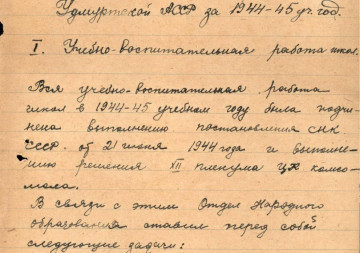 Удмуртской АССР за 1944-45 уч. год.
I. Учебно-воспитательная работа школ.
Вся учебно-воспитательная работа
школ в 1944-45 учебном году была подчи-
нена выполнению постановления СНК
СССР от 21 июня 1944 года и выполне-
нию решения XII пленума ЦК комсо-
мола.
В связи с этим Отдел Народного
образования ставил перед собой
следующие задачи: